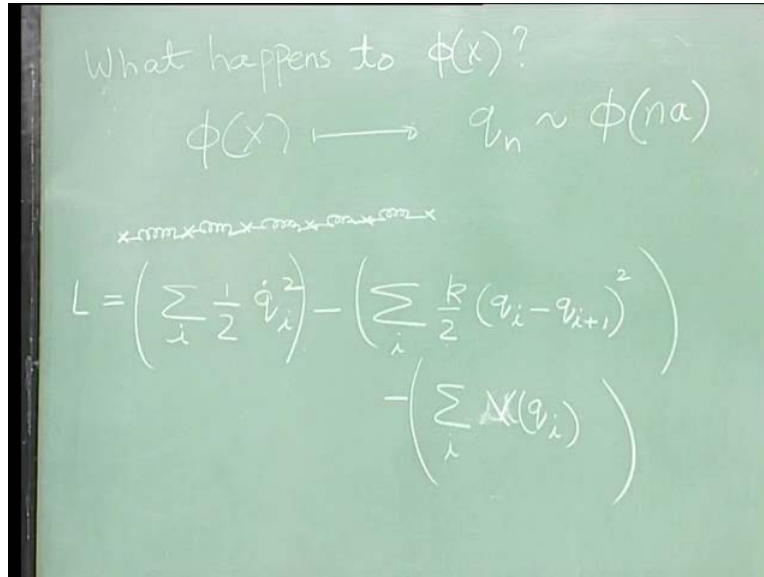 What happens to ϕ(x)?
ϕ(x) ⟼ qₙ ~ ϕ(na)
L = (∑ᵢ 1/2 q̇ᵢ²) − (∑ᵢ k/2 (qᵢ − qᵢ₊₁)²)
− (∑ᵢ V(qᵢ))